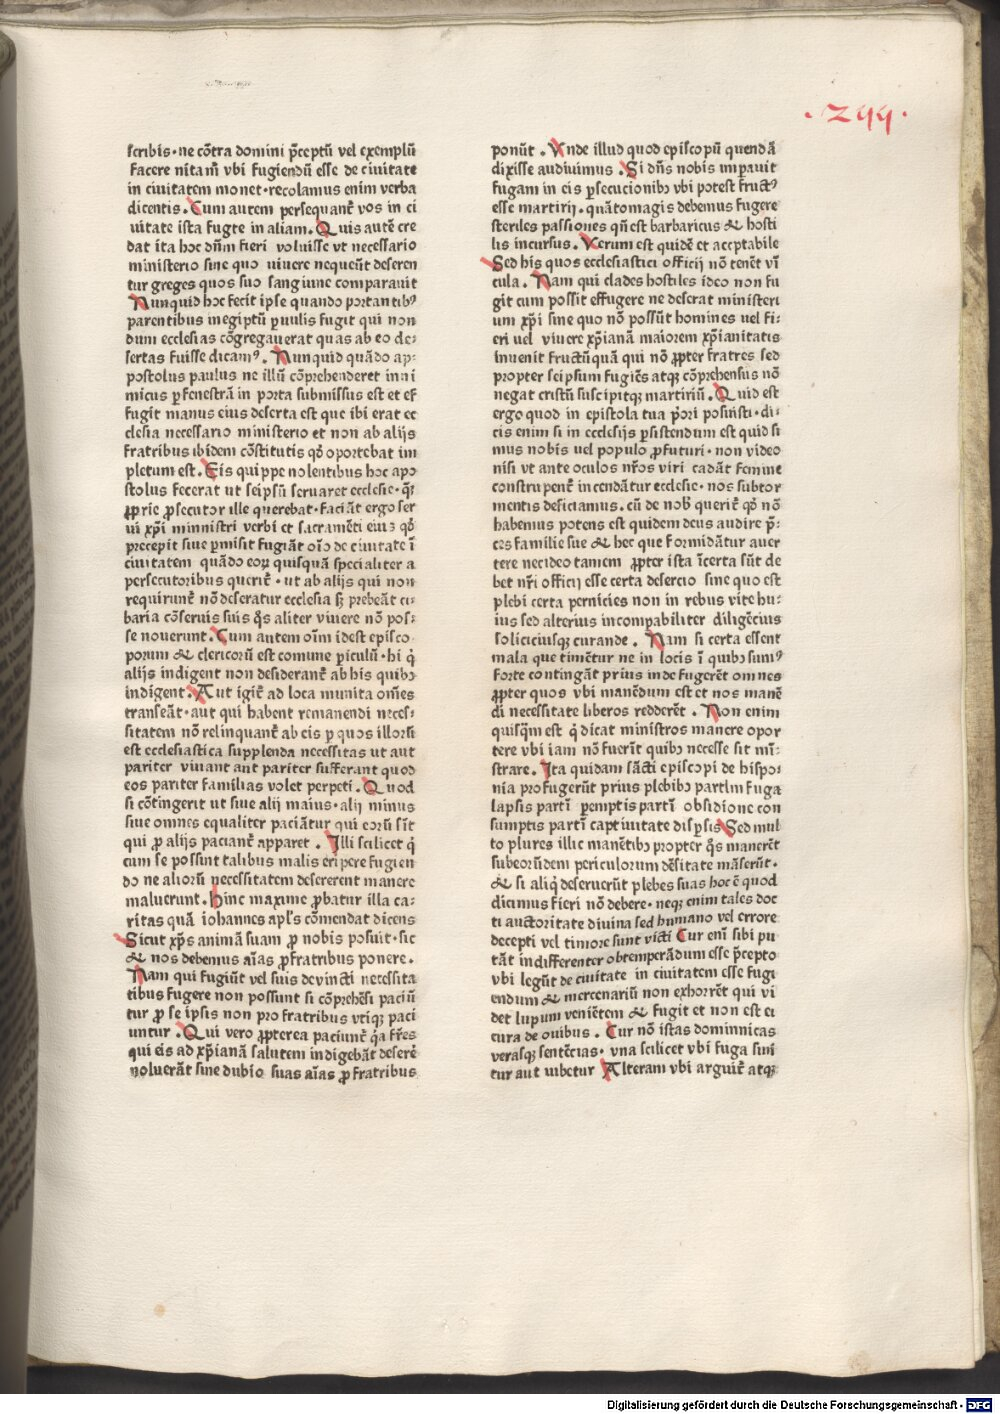 .299.
scribis·ne cōtra domini p̄ceptū vel exemplū
facere nitam̄ vbi fugiendū esse de ciuitate
in ciuitatem monet·recolamus enim verba
dicentis. Cum autem persequant᷑ vos in ci
uitate ista fugite in aliam. Quis autē cre
dat ita hoc dn̄m fieri voluisse vt necessario
ministerio sine quo viuere nequeūt deseren
tur greges quos suo sanguine comparauit
Nunquid hoc fecit ipse quando portantibꝰ
parentibus in egiptū ꝑuulis fugit qui non
dum ecclesias cōgregauerat quas ab eo de⸗
sertas fuisse dicamꝰ. Nunquid quādo ap⸗
postolus paulus ne illū cōprehenderet inni
micus ꝑ fenestrā in porta submissus est et ef
fugit manus eius deserta est que ibi erat ec
clesia necessario ministerio et non ab alijs
fratribus ibidem cōstitutis qd̄ oportebat im
pletum est. Eis quippe nolentibus hoc apo
stolus fecerat ut seipsū seruaret ecclesie·q̄ꝫ
ꝓprie ꝓsecutor ille querebat·faciāt ergo ser
ui xp̄i minnistri verbi et sacramēti eius qd̄
precepit siue ꝑmisit fugiāt oīo de ciuitate ī
ciuitatem quādo eoꝝ quisquā specialiter a
persecutoribus querit᷑·ut ab alijs qui non
requirunt᷑ nō deseratur ecclesia sꝫ prebeāt ci⸗
baria cōseruis suis q̄s aliter viuere nō pos⸗
se nouerunt. Cum autem oīm idest episco
porum ⁊ clericorū est comune ꝑiculū·hi q̇
alijs indigent non desiderant᷑ ab his quibꝫ
indigent. Aut igit᷑ ad loca munita om̄es
transeāt·aut qui habent remanendi neces⸗
sitatem nō relinquant᷑ ab eis ꝑ quos illorū
est ecclesiastica supplenda necessitas ut aut
pariter viuant aut pariter sufferant quod
eos pariter familias volet perpeti. Quod
si cōtingerit ut siue alij maius·alij minus
siue omnes equaliter paciātur qui eorū sīt
qui ꝓ alijs paciant᷑ apparet. Illi scilicet q̇
cum se possint talibus malis eripere fugien
do ne aliorū necessitatem desererent manere
maluerunt. Hinc maxime ꝓbatur illa ca⸗
ritas quā iohannes apl̄s cōmendat dicens
Sicut xp̄s animā suam ꝓ nobis posuit·sic
⁊ nos debemus aīas ꝓ fratribus ponere.
Nam qui fugiūt vel suis deuincti necessita
tibus fugere non possunt si cōprehēsi paciū
tur ꝓ se ipsis non pro fratribus vtiqꝫ paci
untur. Qui vero ꝓpterea paciunt᷑ q̇a fr̄es
qui eis ad xp̄ianā salutem indigebāt deserē
noluerāt sine dubio suas aīas ꝓ fratribus
ponūt. Vnde illud quod episcopū quendā
dixisse audiuimus. Si dn̄s nobis imꝑauit
fugam in eis ꝑsecucionibꝫ vbi potest fructꝰ
esse martirij·quātomagis debemus fugere
steriles passiones qn̄ est barbaricus ⁊ hosti
lis incursus. Verum est quidē et acceptabile
Sed his quos ecclesiastici officij nō tenēt vī
cula. Nam qui clades hostiles ideo non fu
git cum possit effugere ne deserat ministeri
um xp̄i sine quo nō possūt homines uel fi⸗
eri uel viuere xp̄ianā maiorem xp̄ianitatis
inuenit fructū quā qui nō ꝓpter fratres sed
propter seipsum fugiēs atqꝫ cōprehensus nō
negat cristū suscipitqꝫ martiriū. Quid est
ergo quod in epistola tua p̄ori posuisti·di⸗
cis enim si in ecclesijs ꝑsistendum est quid si
mus nobis uel populo ꝓfuturi·non video
nisi vt ante oculos nr̄os viri cadāt femine
construpent᷑ incendātur ecclesie·nos subtor
mentis deficiamus. cū de nob̄ querit᷑ qd̄ nō
habemus potens est quidem deus audire p̄⸗
ces familie sue ⁊ hec que formidātur auer
tere nec ideo tamen ꝓpter ista īcerta sūt de
bet nr̄i officij esse certa desercio sine quo est
plebi certa pernicies non in rebus vite hu⸗
ius sed alterius incompabiliter diligēcius
soliciciusqꝫ curande. Nam si certa essent
mala que timētur ne in locis ī quibꝫ sumꝰ
forte contingāt prius inde fugerēt omnes
ꝓpter quos vbi manēdum est et nos manē
di necessitate liberos redderēt. Non enim
quisq̄m est q̇ dicat ministros manere opor
tere vbi iam nō fuerīt quibꝫ necesse sit mī⸗
strare. Ita quidam sācti episcopi de hispo⸗
nia profugerūt prius plebibꝫ partim fuga
lapsis partī ꝑemptis partī obsidione con
sumptis partī captiuitate disꝑsis Sed mul
to plures illic manētibꝫ propter q̄s manerēt
sub eorūdem periculorum dēsitate māserūt·
⁊ si aliq̇ deseruerūt plebes suas hoc ē quod
dicimus fieri nō debere·neqꝫ enim tales doc
ti auctoritate diuina sed humano vel errore
decepti vel timore sunt victi Cur enī sibi pu
tāt indifferenter obtemperādum esse p̄cepto
vbi legūt de ciuitate in ciuitatem esse fugi
endum ⁊ mercenariū non exhorrēt qui vi
det lupum veniētem ⁊ fugit et non est ei
cura de ouibus. Cur nō istas dominnicas
verasqꝫ sentēcias·vna scilicet vbi fuga sini
tur aut iubetur Alteram vbi arguit᷑ atqꝫ
Digitalisierung gefördert durch die Deutsche Forschungsgemeinschaft - DFG